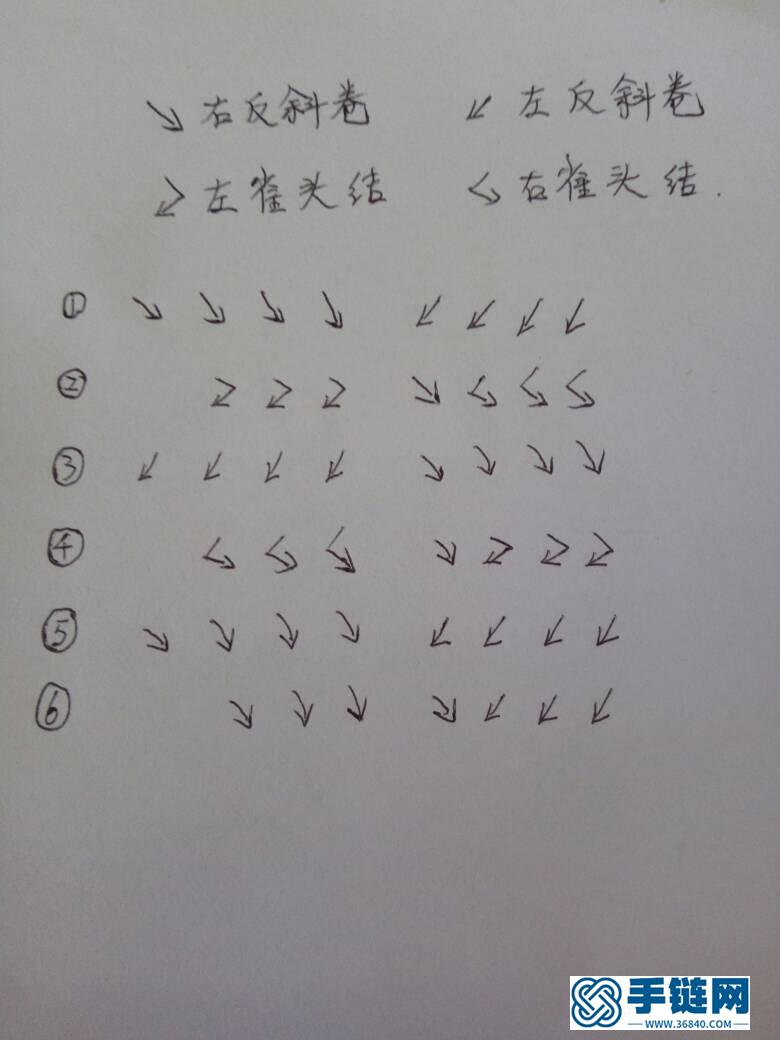 ↘ 右反斜卷 ↙ 左反斜卷
左雀头结 右雀头结.
① ↘ ↘ ↘ ↘ ↙ ↙ ↙ ↙
②
③ ↙ ↙ ↙ ↙ ↘ ↘ ↘ ↘
④
⑤ ↘ ↘ ↘ ↘ ↙ ↙ ↙ ↙
⑥ ↘ ↘ ↘ ↘ ↙ ↙ ↙
手链网
WWW.36840.COM